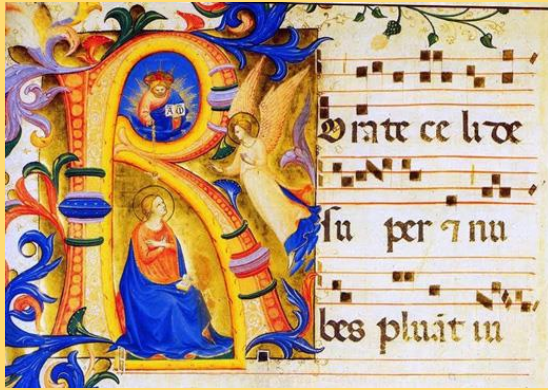 ROrate ce li de
su per ⁊ nu
bes pluāt iu